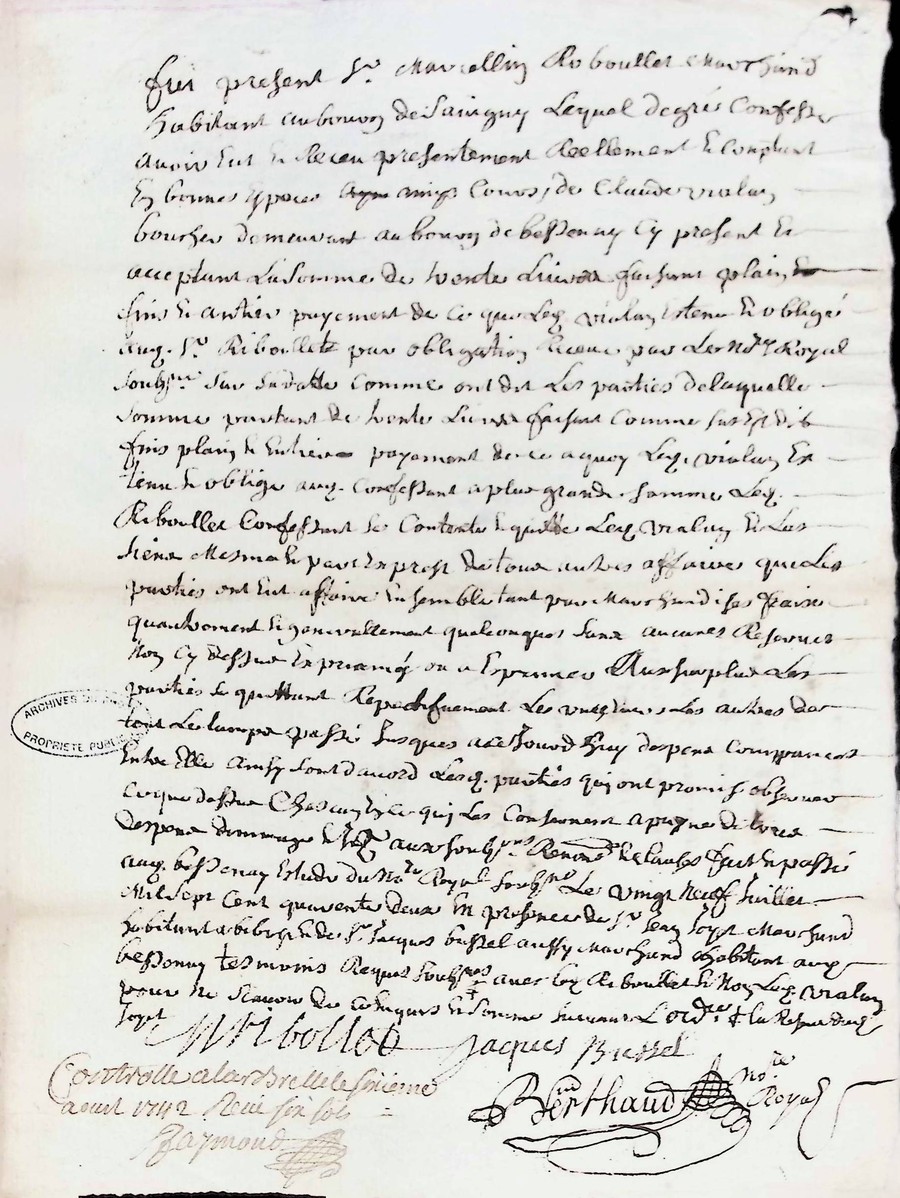 fut present Sr Marcellin Riboullet Marchand
habitant au bourg de Savigny Lequel de gré Confesse
avoir Eut et Receu presentement Reellement et Comptant
En bonnes Espèces Cours de Claude Vialay
boucher demeurant au bourg de bessenay Cy present et
acceptant La somme de trente Livres faisant plain
fins et antier payement de Ce que Led. Vialay Est tenu et obligé
aud. Sr Riboullet par obligation Receue par Le Nore Royal
soubsné sur sa datte Comme ont dit Les parties de laquelle
somme partant de trente Livres faisant Comme sus Est dit
fins plain et Entier payement de ce a quoy Led. Vialay Est
tenu et obligé aud. Confessant a plus grande somme Led.
Riboullet Confessant se Contente et quitte Led. Vialay et Les
siens Mesme par Expres de tous autres affaires que Les
parties ont Eut affaire Ensemble tant par Marchandises
quautrement et generallement quelconques sans aucunes Reserves
Non Cy dessus Exprimés ou a Exprimer Au surplus Les
parties se quittent Respectivement Les uns Les autres de
tout Le temps passé Jusques a ce Jourd'huy despens
Entre Elle Ainsy sont d'acord Lesd. parties qui ont promis observer
Ce que dessus Chascung Ce qui Les Concernent a payne de tous
despens dommages aux soubsns Renonce et Clauses fait et passé
aud. bessenay Estude du Nore Royal soubsné Le vingt neuf Juillet
Mil sept Cent quarente deux En presence de Sr Jean Marchand
habitant a bibost et de Sr Jacques bussel aussy Marchand habitant aud.
bessenay tesmoins Requis soubsnés avec led. Riboullet et Non Led. Vialay
pour ne scavoir de Ce Enquis et somme suivant L'ordce

M Ribollet Jacques Bussel
Controllé a larbrelle le sixieme
aout 1742 Receu six sols
Raymond
Berthaud Nore Royal
ARCHIVES
PROPRIETE PUBLIQUE